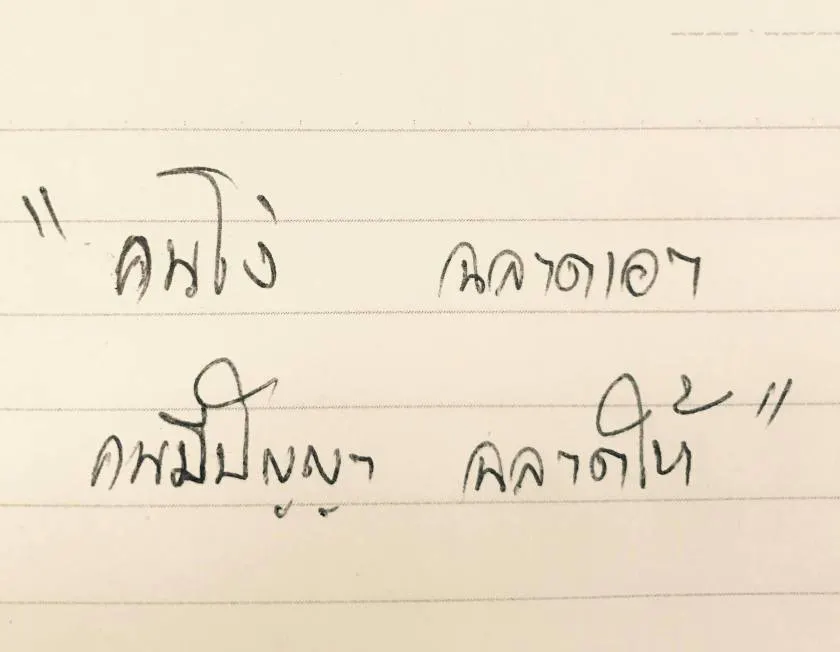 "คนโง่ ฉลาดเอา
คนมีปัญญา ฉลาดให้"